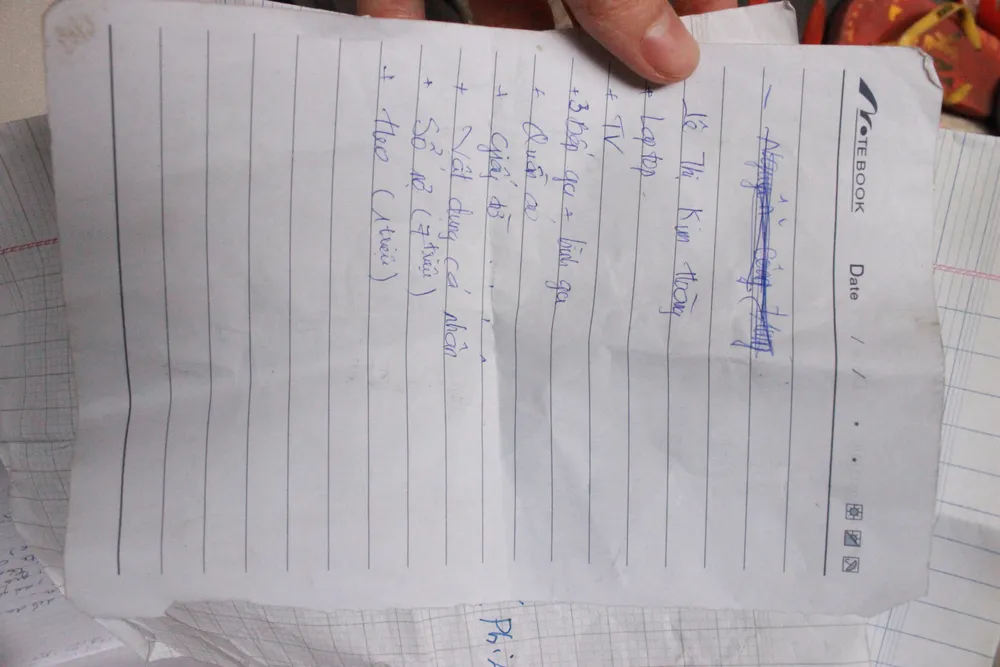 NOTEBOOK Date / /
Lê Thị Kim Hường
+ Laptop
+ TV
+ 3 Bếp ga + bình ga
+ Quần áo
+ Giấy tờ
+ Vật dụng cá nhân
+ Sổ nợ (7 triệu)
+ Heo (1 triệu)
Phi